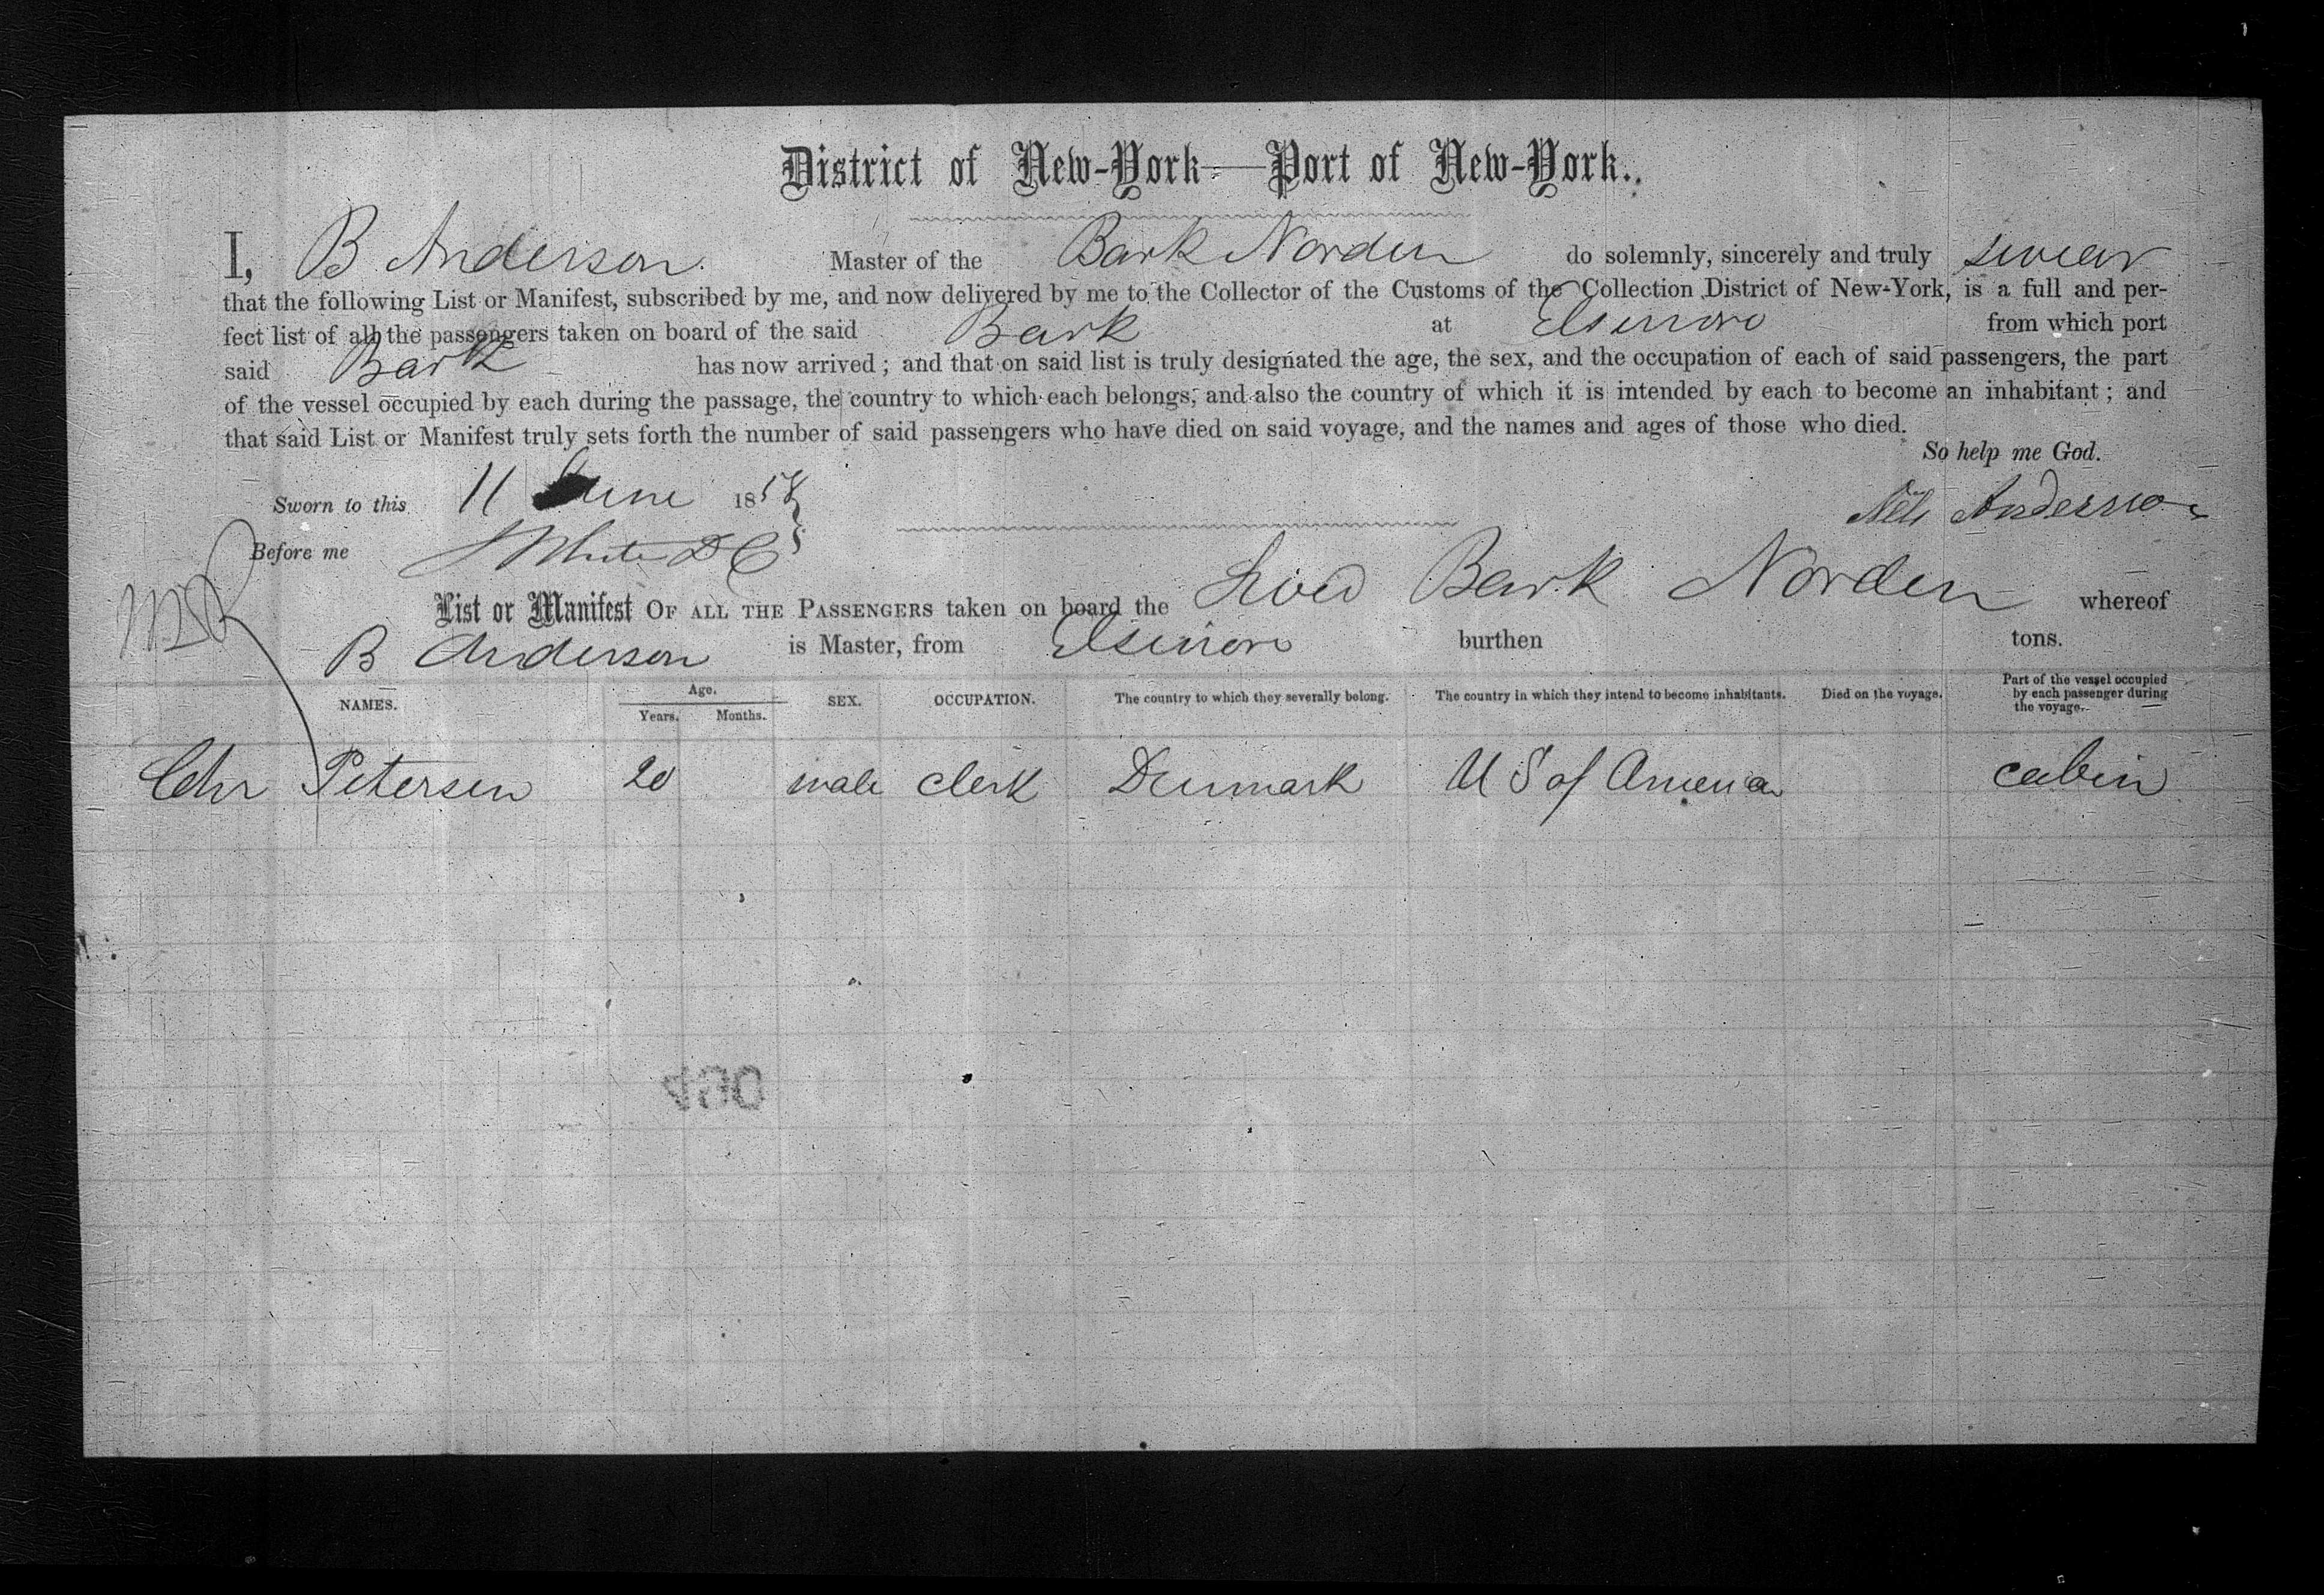 District of New-York—Port of New-York.
I, B Anderson. Master of the Bark Norden do solemnly, sincerely and truly swear
that the following List or Manifest, subscribed by me, and now delivered by me to the Collector of the Customs of the Collection District of New-York, is a full and per-
fect list of all the passengers taken on board of the said Bark at Elsinore from which port
said Bark has now arrived; and that on said list is truly designated the age, the sex, and the occupation of each of said passengers, the part
of the vessel occupied by each during the passage, the country to which each belongs, and also the country of which it is intended by each to become an inhabitant; and
that said List or Manifest truly sets forth the number of said passengers who have died on said voyage, and the names and ages of those who died.
So help me God.
Sworn to this 11 June 1858
Nels Anderson
Before me
List or Manifest OF ALL THE PASSENGERS taken on board the Bark Norden whereof
B Anderson is Master, from Elsinore burthen tons.
NAMES. Age. Years. Months. SEX. OCCUPATION. The country to which they severally belong. The country in which they intend to become inhabitants. Died on the voyage. Part of the vessel occupied by each passenger during the voyage.
Chr Petersen 20 male clerk Denmark U S of America cabin